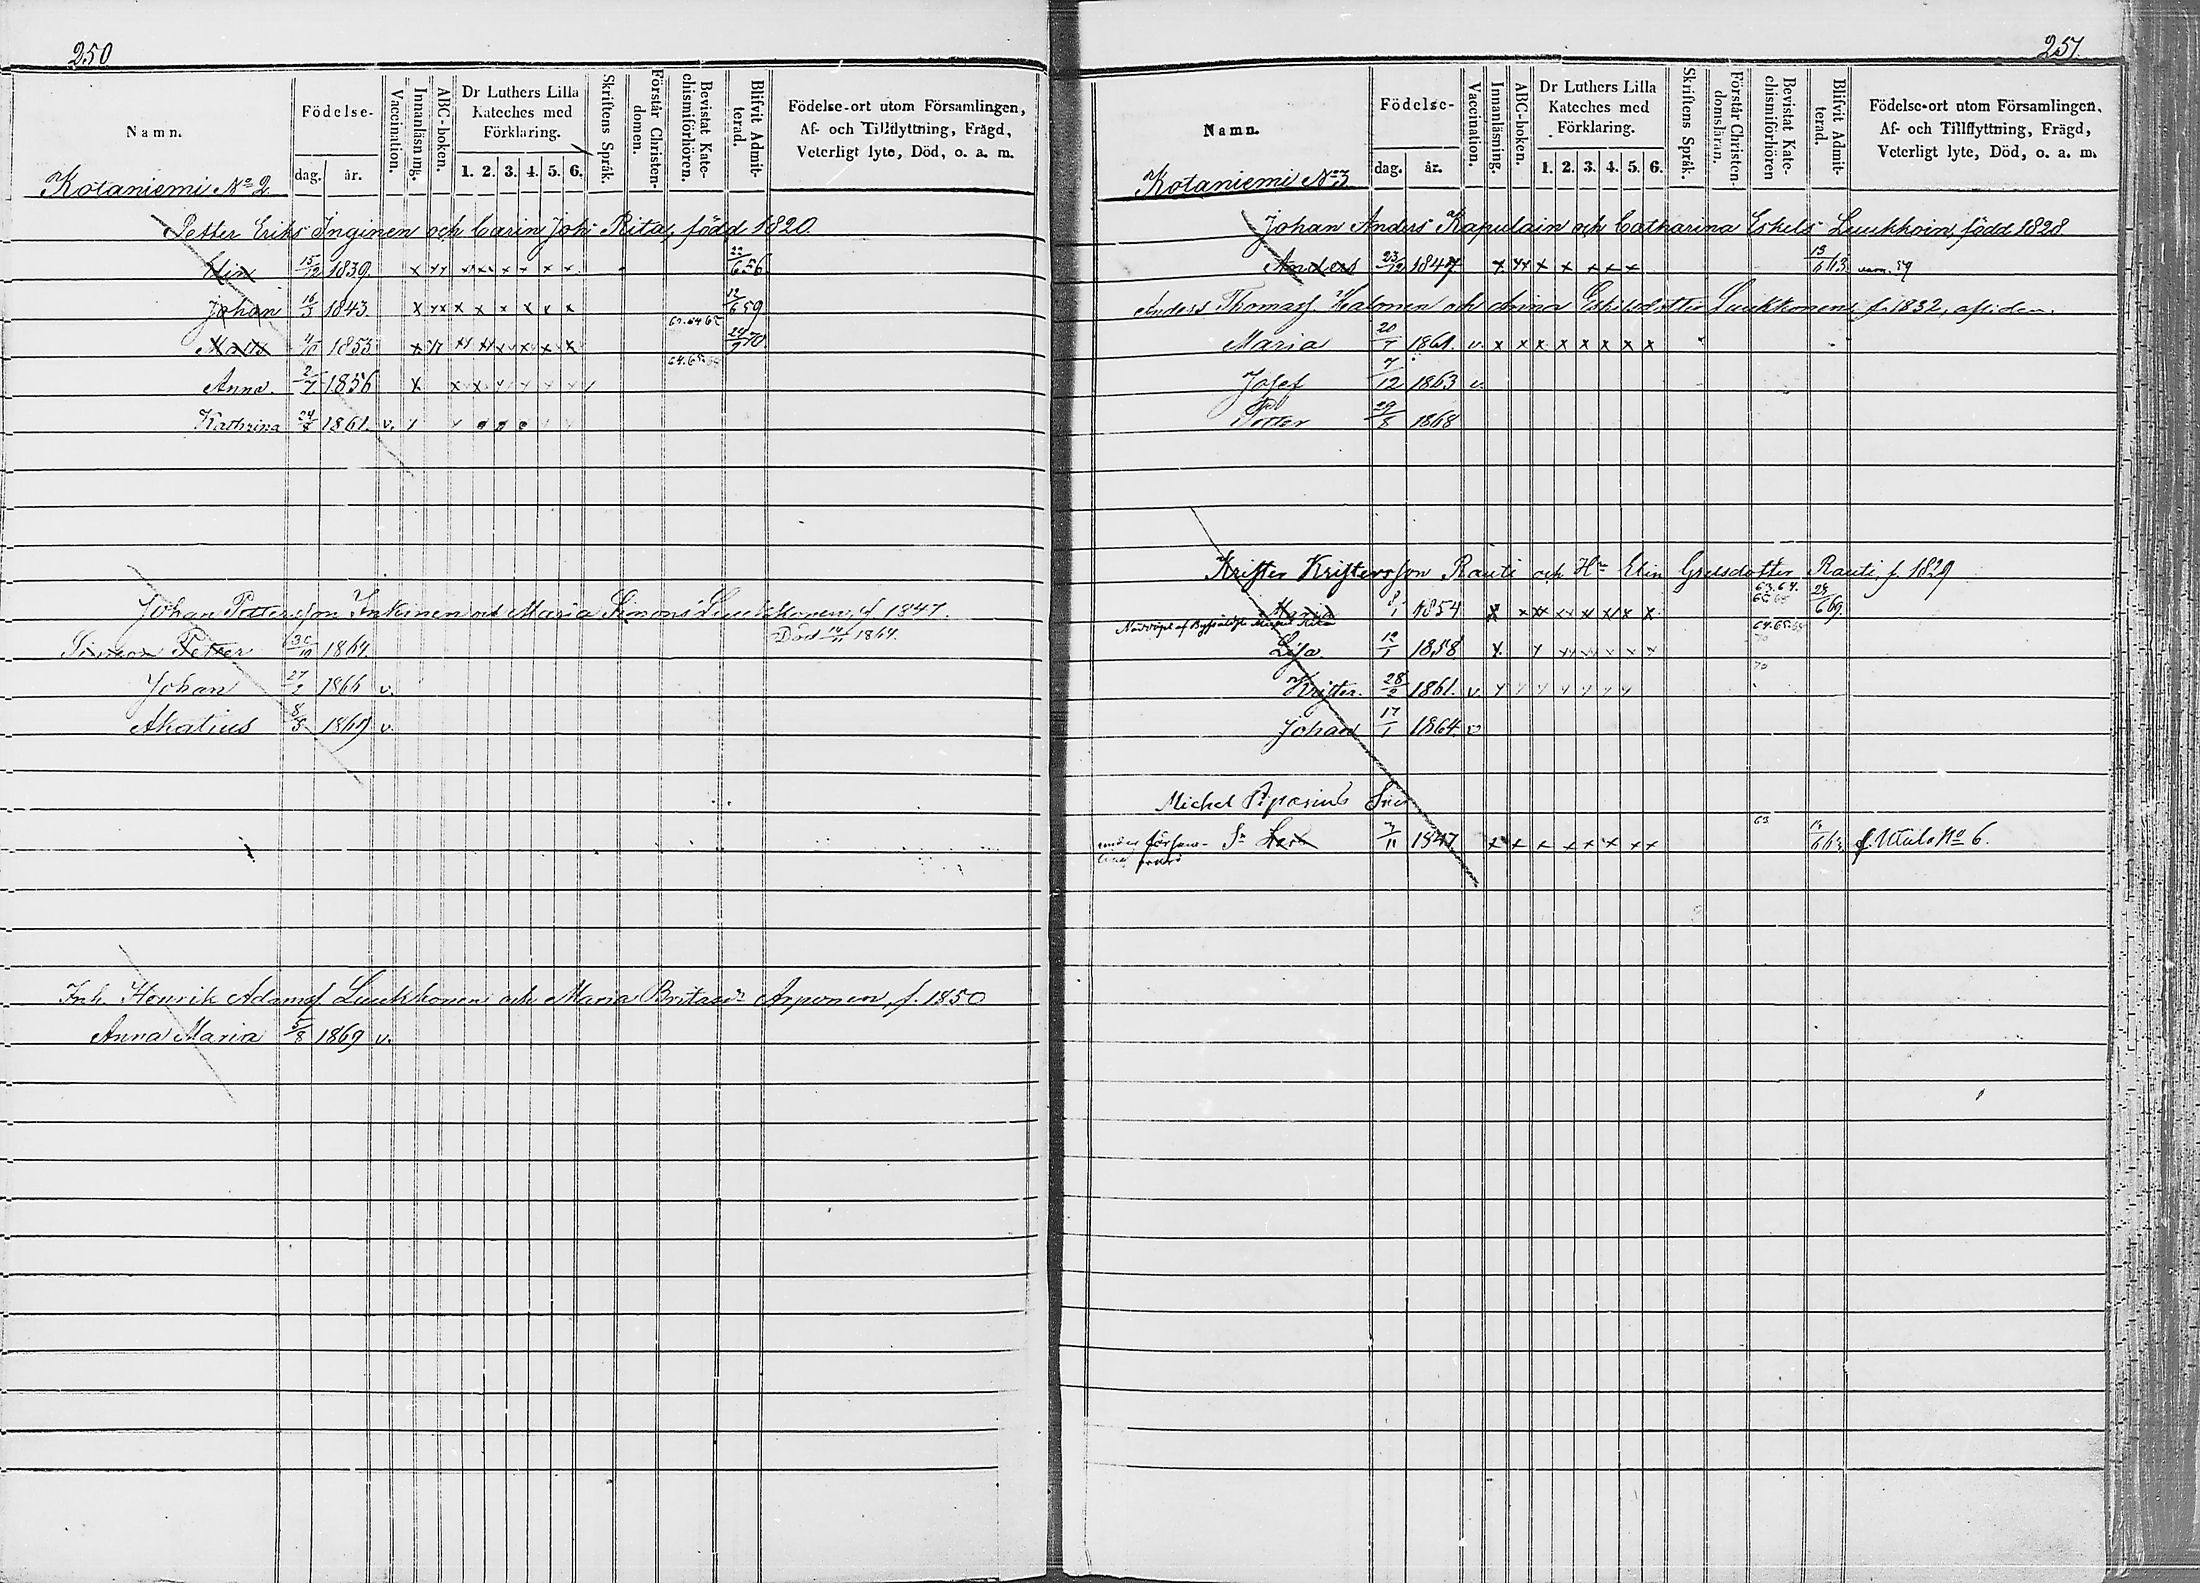 250
Namn.
Födelse-
dag. år.
Vaccination.
Innanläsning.
ABC-boken.
Dr Luthers Lilla Kateches med Förklaring.
1. 2. 3. 4. 5. 6.
Skriftens Språk.
Förstår Christendomen.
Bevistat Katechismiförhören.
Blifvit Admitterad.
Födelse-ort utom Församlingen,
Af- och Tillflyttning, Frägd,
Veterligt lyte, Död, o. a. m.
Kotaniemi No 2
Petter Eriks Inginen och Carin Joh: Rita, född 1820
Elin 15/12 1839. x xx xx xx x x x x 22/6 56
Johan 16/3 1843. x xx x x x x x x 12/6 59
Matts 1853 x 24/9 70
Anna. 2/7 1856 x x x
Kathrina 1861. v.
Johan Pettersson Inkinen och Maria Simons Luukkonen, f 1847.
Simon Petter 30/10 1864. Död 14/11 1864.
Johan 27/2 1866 v.
Akatius 8/8 1869 v.
Inh. Henrik Adamsf Luukkonen och Maria Britasdr Arponen, f. 1850
Anna Maria 5/8 1869 v.
251.
Namn.
Födelse-
dag. år.
Vaccination.
Innanläsning.
ABC-boken.
Dr Luthers Lilla Kateches med Förklaring.
1. 2. 3. 4. 5. 6.
Skriftens Språk.
Förstår Christendomsläran.
Bevistat Katechismiförhören
Blifvit Admitterad.
Födelse-ort utom Församlingen.
Af- och Tillflyttning, Frägd,
Veterligt lyte, Död, o. a. m.
Kotaniemi No 3
Johan Anders Kapulain och Catharina Eskels Luukkoin, född 1828
Anders 23/12 1847 x xx x x x x x 13/6 63
Anders Thomass. Halonen och Anna Eskelsdotter Luukkonen f. 1832, afliden.
Maria 20/7 1861. v. x x x x x x x x
Josef 7/12 1863 v.
Petter 29/8 1868
Krister Kristersson Rauti och Hu Elin Grelsdotter Rauti, f. 1829
63. 64.
Maria 8/1 1854 x xx xx xx x xx x x 69.
64. 65.
Lisa 12/1 1858. x.
70
Krister. 28/2 1861. v
Johan 17/1 1864. v
Michel Piparints
63
1847 x x x x x x x x No 6.